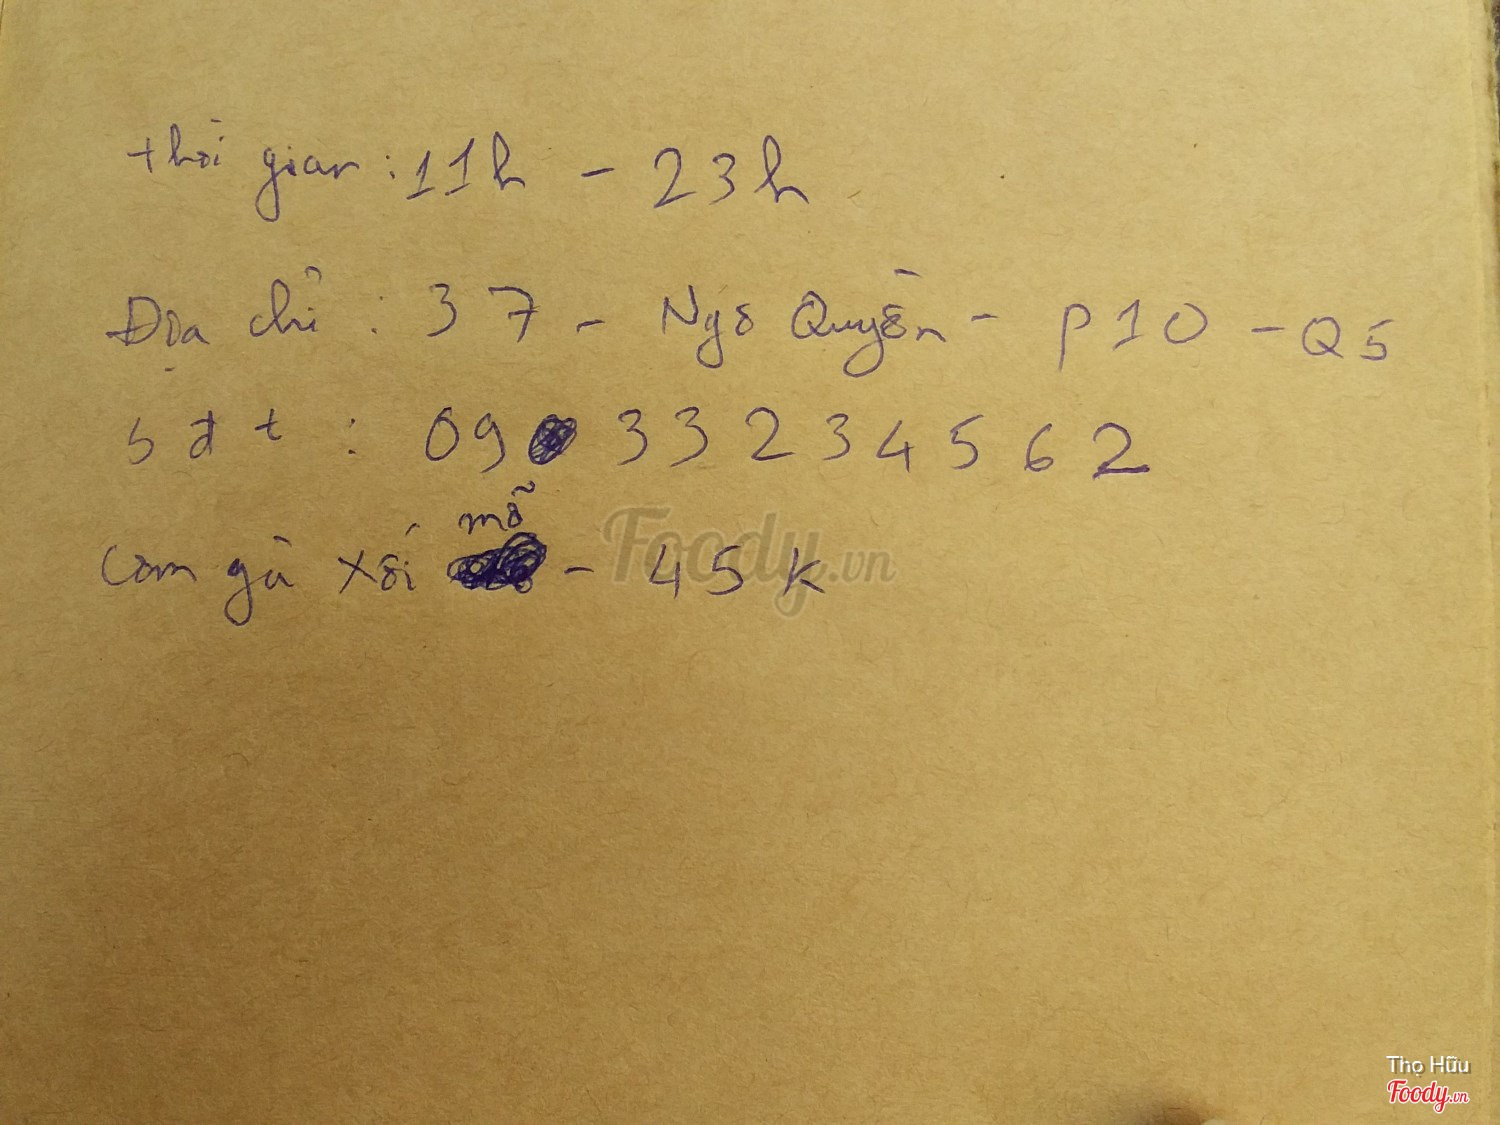 thời gian : 11h - 23h
Địa chỉ : 37 - Ngô Quyền - P10 - Q5
sđt : 09 33234562
Cơm gà xối mỡ - 45k
Foody.vn
Thọ Hữu
Foody.vn